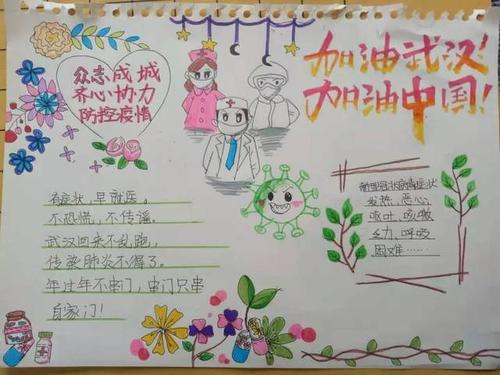 众志成城
齐心协力
防控疫情
加油武汉!
加油中国!
有症状，早就医。
不恐慌，不传谣。
武汉回来不乱跑，
传染肺炎不得了。
年过年不串门，串门只串
自家门！
新型冠状病毒症状
发热、恶心、
呕吐、咳嗽
乏力、呼吸
困难……